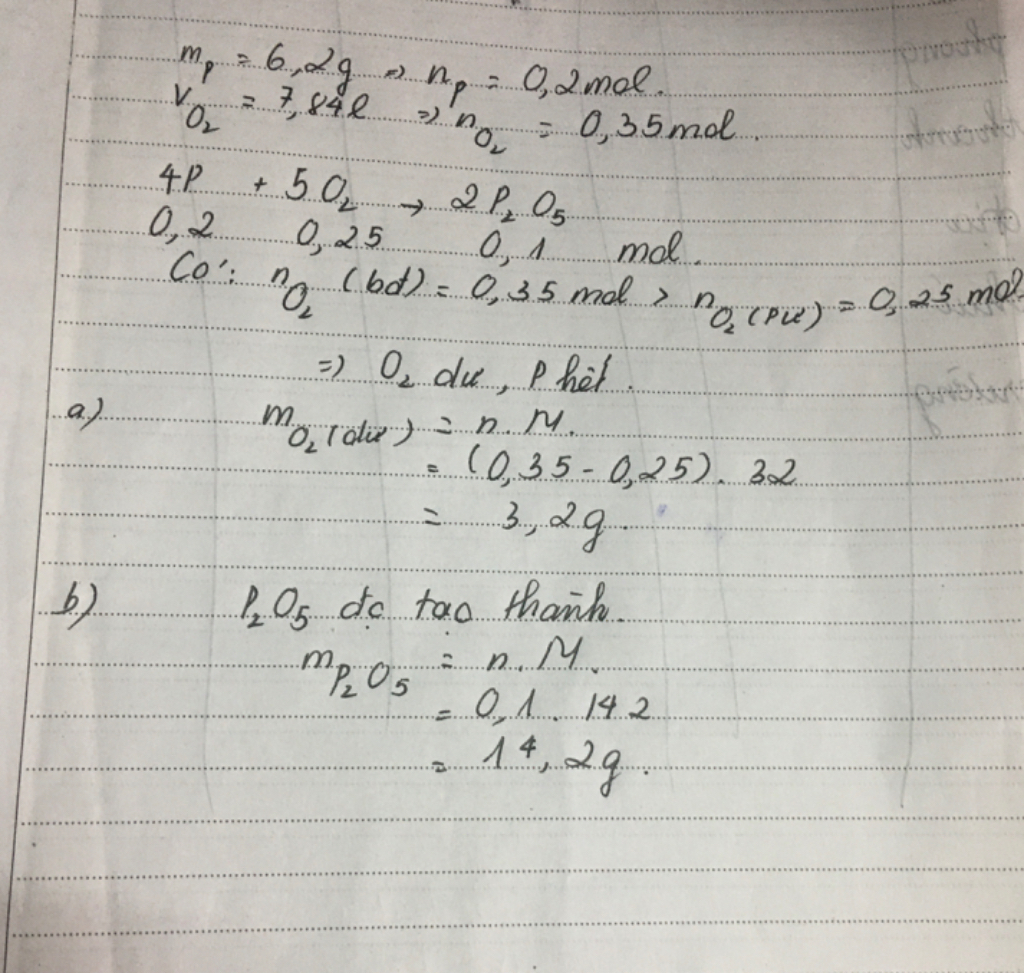 m_P = 6,2g => n_P = 0,2mol.
V_O₂ = 7,84l => n_O₂ = 0,35mol.
4P + 5O₂ → 2P₂O₅
0,2 0,25 0,1 mol.
Có: n_O₂ (bđ) = 0,35 mol > n_O₂ (PƯ) = 0,25 mol.
=> O₂ dư, P hết.
a) m_O₂ (dư) = n.M.
= (0,35 - 0,25). 32
= 3,2g.
b) P₂O₅ đc tạo thành.
m_P₂O₅ = n.M.
= 0,1. 142
= 14,2g.